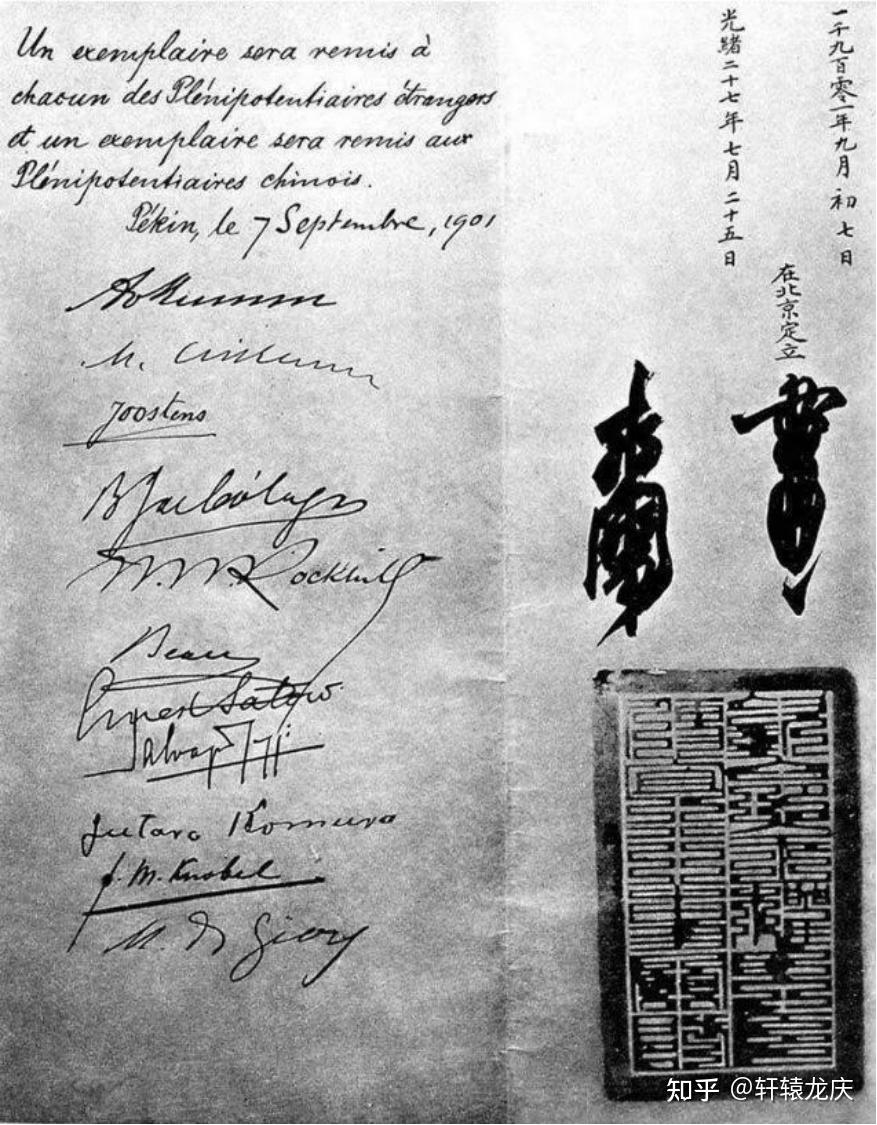 Un exemplaire sera remis à
chacun des Plénipotentiaires étrangers
et un exemplaire sera remis aux
Plénipotentiaires chinois.
Pékin, le 7 Septembre, 1901
Joostens
W. W. Rockhill
Beau
Ernest Satow
Salvago
Jutaro Komura
F. M. Knobel
M. de Giers
一千九百零一年九月初七日
光緒二十七年七月二十五日
在北京定立
知乎 @轩辕龙庆